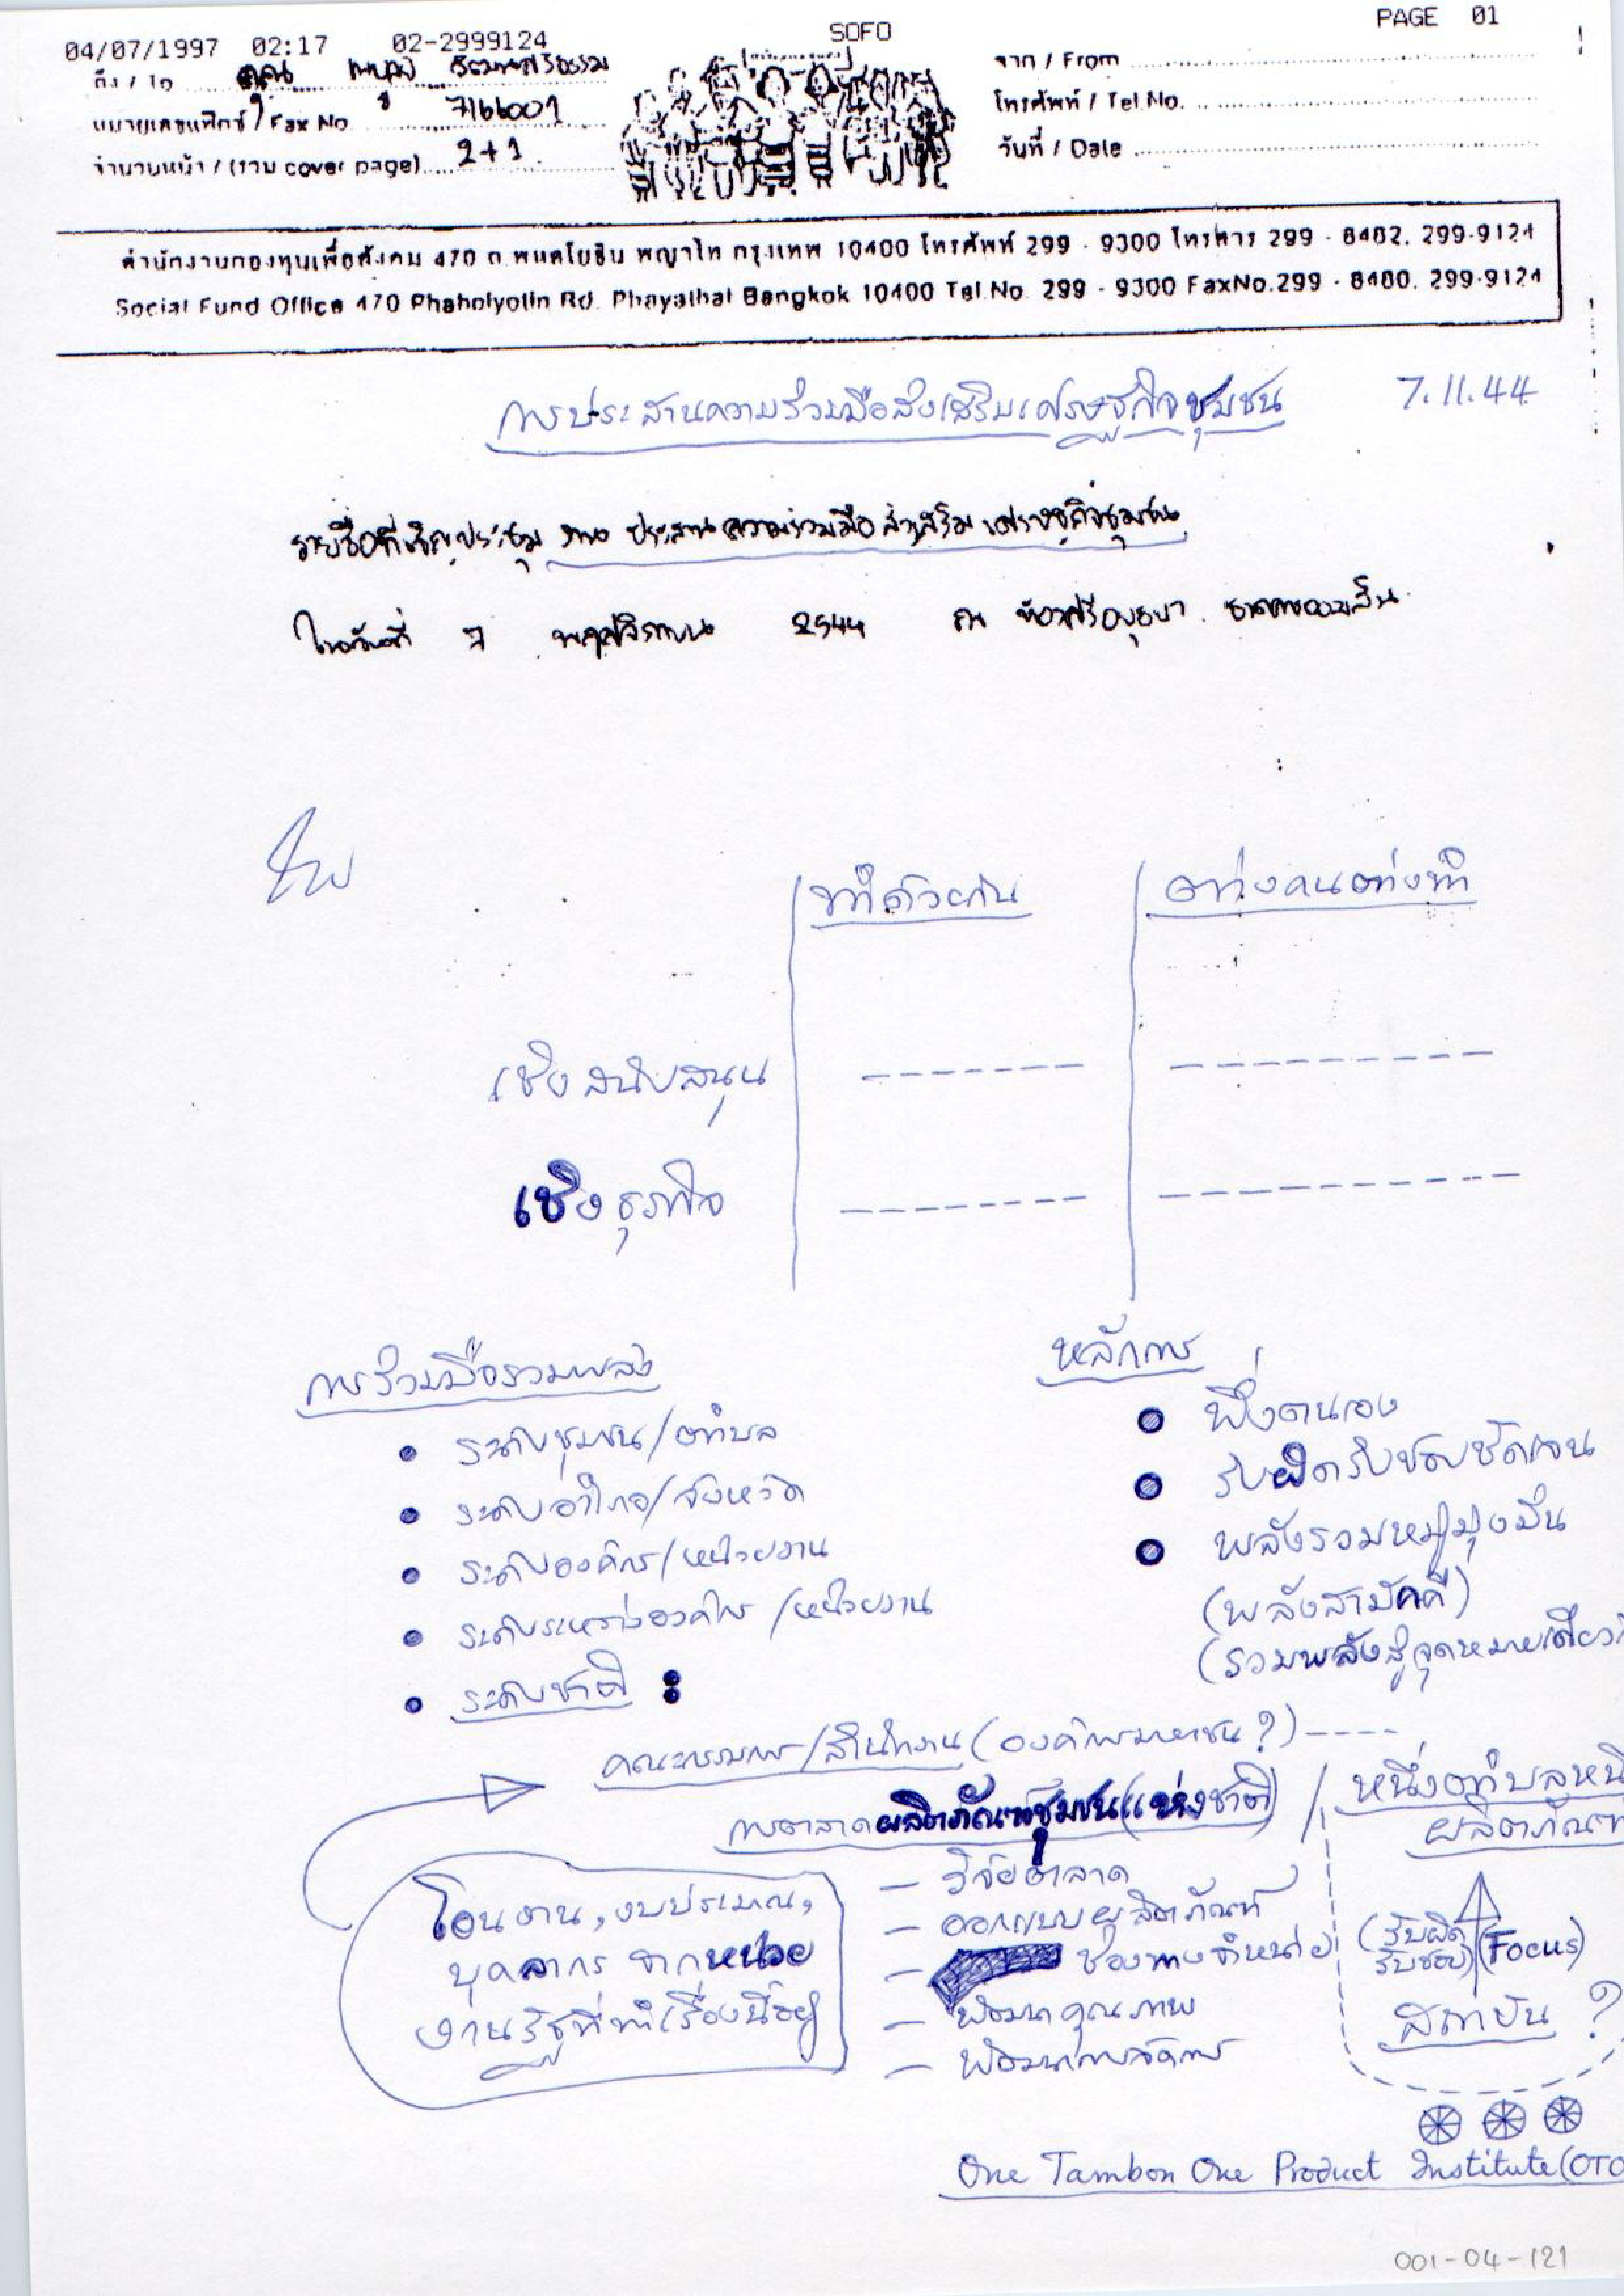 04/07/1997 02:17 02-2999124 SOFO PAGE 01
ถึง / To คุณ ไพบูลย์ วัฒนศิริธรรม
หมายเลขแฟกซ์ / Fax No 7166001
จำนวนหน้า / (รวม cover page) 2+1
จาก / From
โทรศัพท์ / Tel.No.
วันที่ / Date
สำนักงานกองทุนเพื่อสังคม 470 ถ.พหลโยธิน พญาไท กรุงเทพ 10400 โทรศัพท์ 299 - 9300 โทรสาร 299 - 8482, 299-9124
Social Fund Office 470 Phaholyotin Rd. Phayathai Bangkok 10400 Tel.No. 299 - 9300 FaxNo.299 - 8480, 299-9124
การประสานความร่วมมือส่งเสริมเศรษฐกิจชุมชน 7.11.44
รายชื่อที่เชิญประชุม งาน ประสานความร่วมมือ ส่งเสริม เศรษฐกิจชุมชน
ในวันที่ 7 พฤศจิกายน 2544 ณ ห้องศรีอยุธยา ธนาคารออมสิน
ทำด้วยกัน ต่างคนต่างทำ
เชิงสนับสนุน
เชิงธุรกิจ
การร่วมมือรวมพลัง
• ระดับชุมชน/ตำบล
• ระดับอำเภอ/จังหวัด
• ระดับองค์กร/หน่วยงาน
• ระดับระหว่างองค์กร/หน่วยงาน
• ระดับชาติ :
หลักการ
• พึ่งตนเอง
• รับผิดรับชอบชัดเจน
• พลังรวมหมู่มุ่งมั่น
(พลังสามัคคี)
(รวมพลังสู่จุดหมายเดียวกั
คณะกรรมการ/สำนักงาน (องค์การมหาชน ?) ----
การตลาดผลิตภัณฑ์ชุมชน(แห่งชาติ) / หนึ่งตำบลหนึ
ผลิตภัณฑ
– วิจัยตลาด
– ออกแบบผลิตภัณฑ์
– ช่องทางจำหน่าย
– พัฒนาคุณภาพ
– พัฒนาการจัดการ
โอนงาน, งบประมาณ,
บุคลากร จากหน่วย
งานรัฐที่ทำเรื่องนี้อยู่
(รับผิด
รับชอบ) (Focus)
สถาบัน ?
One Tambon One Product Institute (OTO
001-04-121